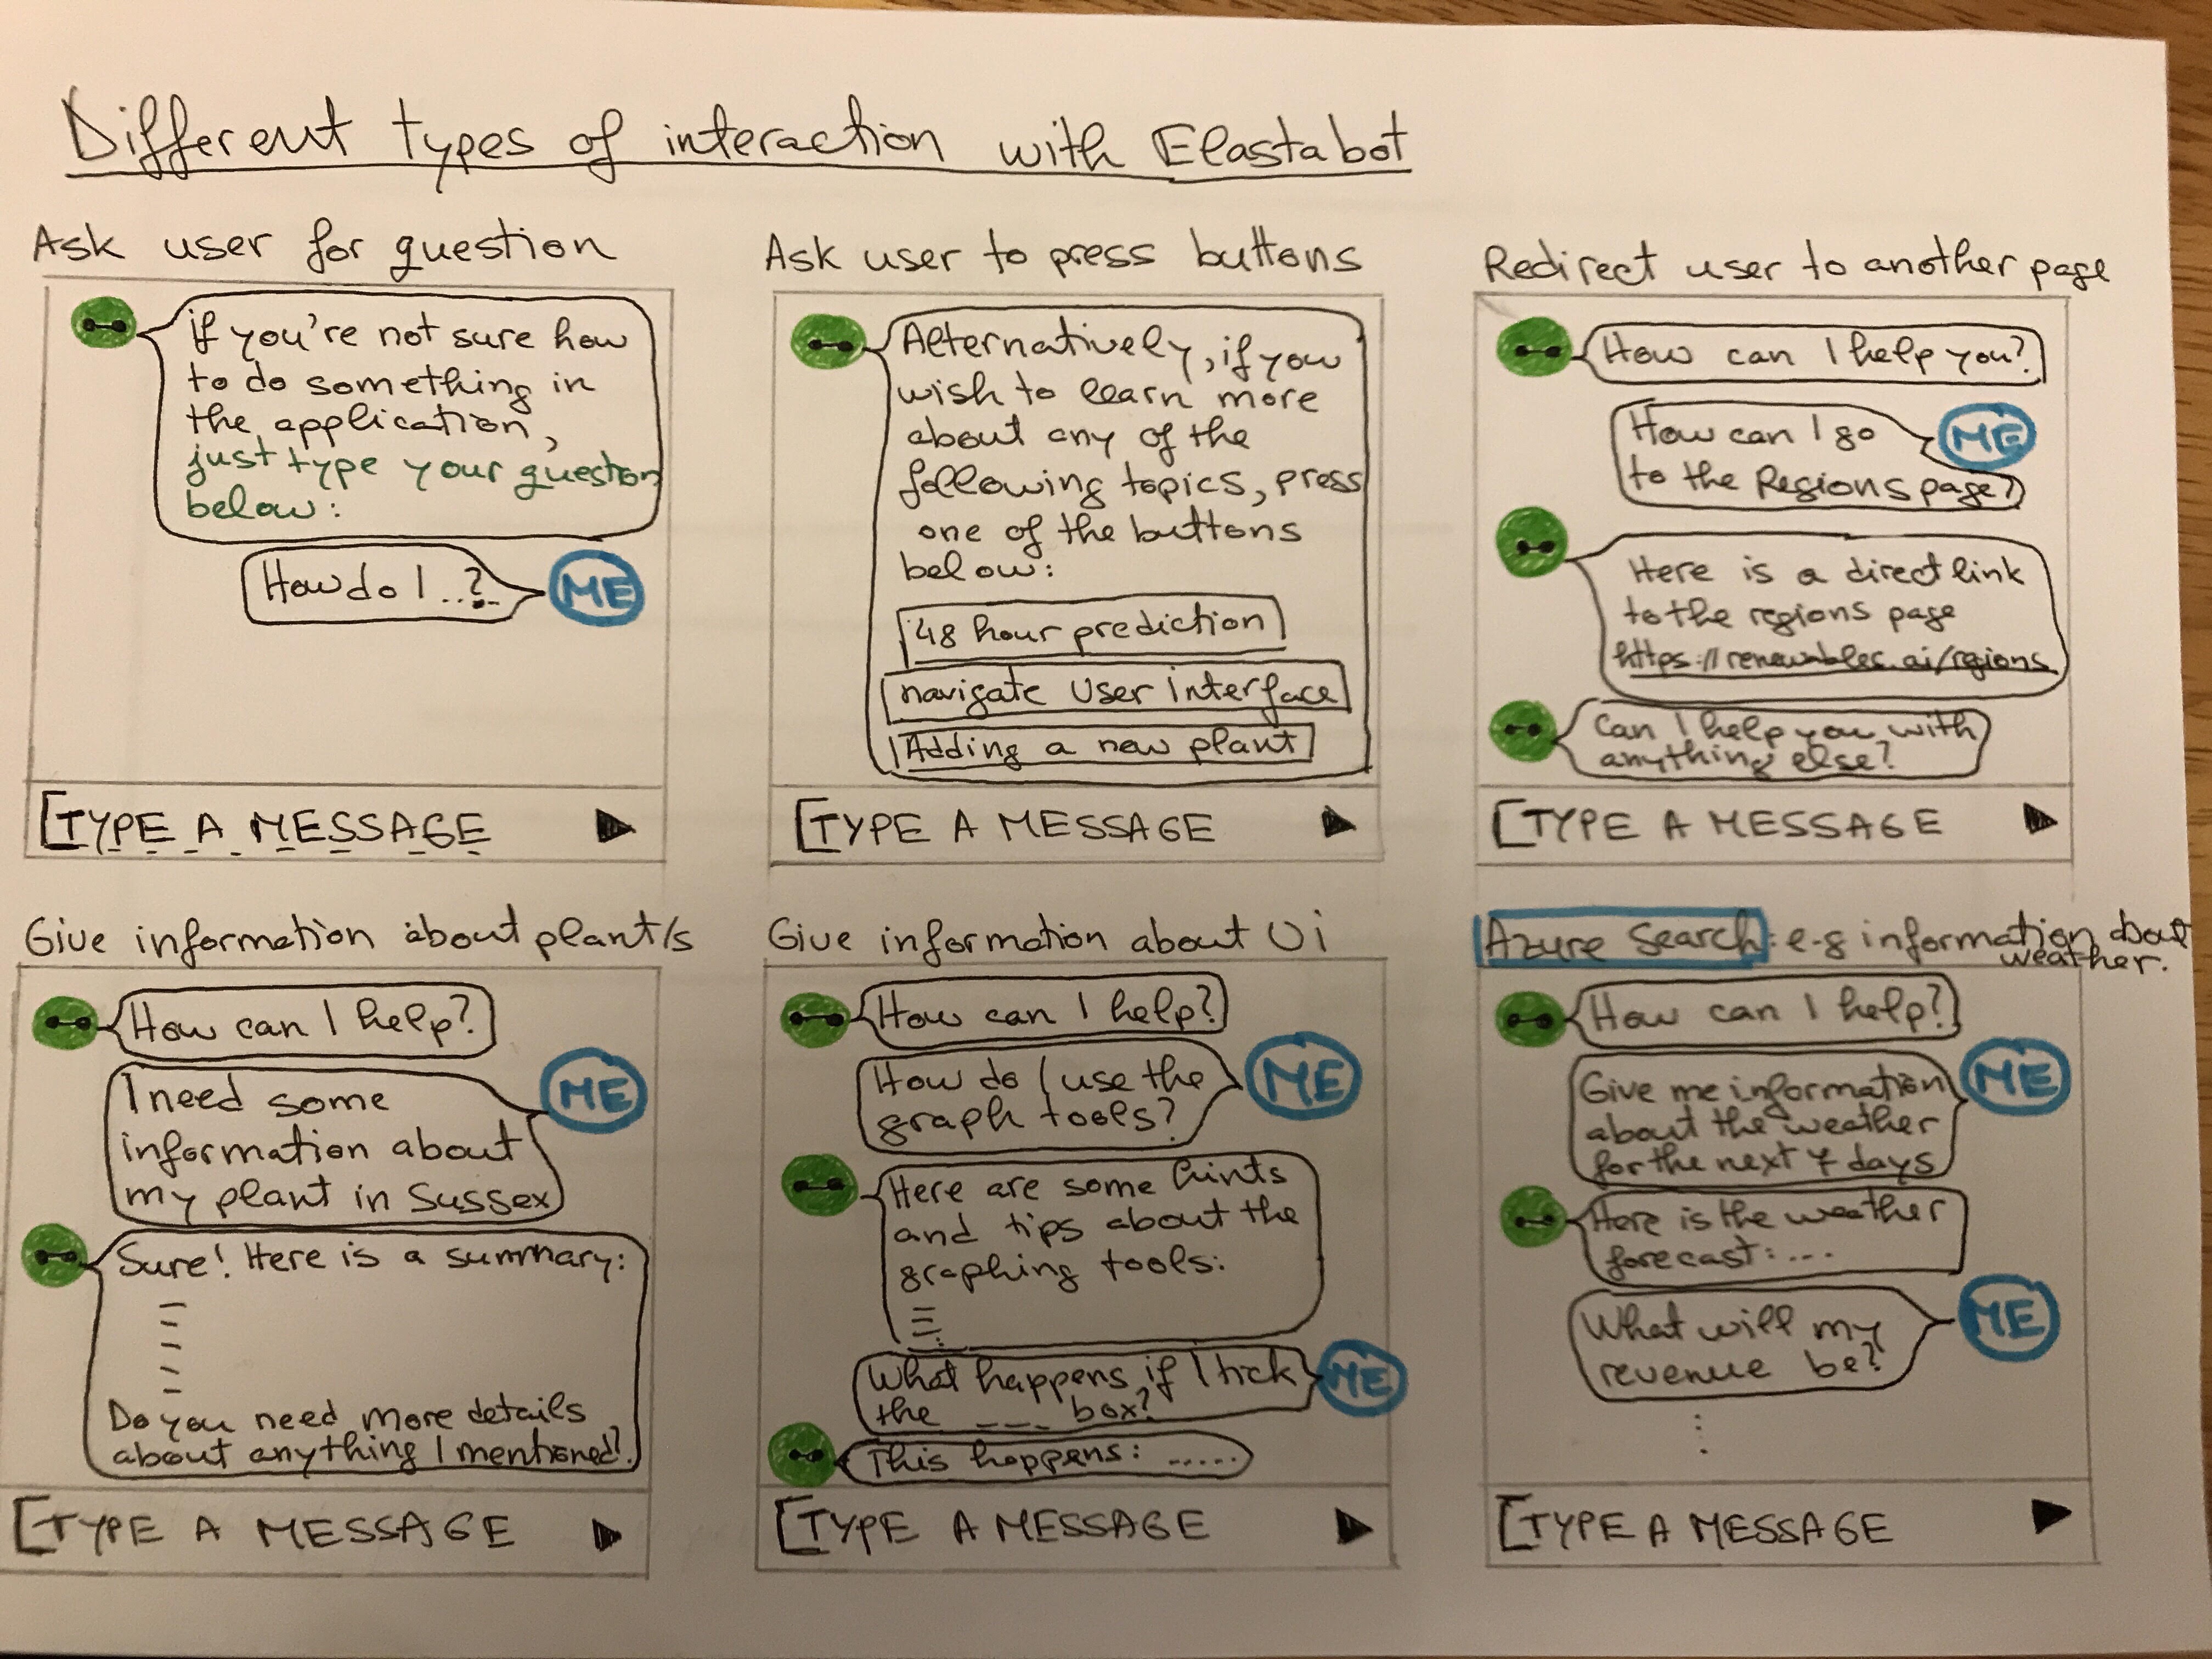 Different types of interaction with Elastabot
Ask user for question
if you're not sure how
to do something in
the application,
just type your question
below:
How do I ..?
ME
[TYPE A MESSAGE
Ask user to press buttons
Alternatively, if you
wish to learn more
about any of the
following topics, press
one of the buttons
below:
48 hour prediction
navigate User interface
Adding a new plant
[TYPE A MESSAGE
Redirect user to another page
How can I help you?
How can I go
to the Regions page?
ME
Here is a direct link
to the regions page
https://renewables.ai/regions
Can I help you with
anything else?
[TYPE A MESSAGE
Give information about plant/s
How can I help?
I need some
information about
my plant in Sussex
ME
Sure! Here is a summary:
Do you need more details
about anything I mentioned?
[TYPE A MESSAGE
Give information about Ui
How can I help?
How do I use the
graph tools?
ME
Here are some hints
and tips about the
graphing tools:
What happens if I tick
the ___ box?
ME
This happens: .....
[TYPE A MESSAGE
Azure Search: e-g information about
weather.
How can I help?
Give me information
about the weather
for the next 7 days
ME
Here is the weather
forecast: ...
What will my
revenue be?
ME
[TYPE A MESSAGE